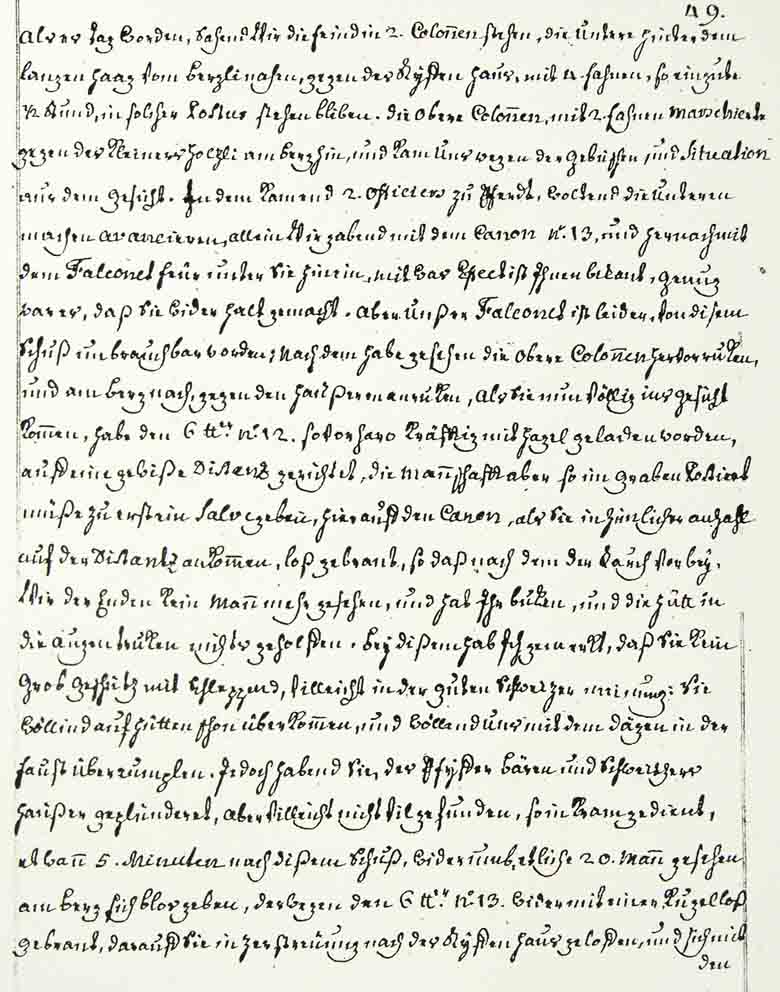 49.
als es tag worden, sahend Wir die feind in 2. Colon̄en stehen, die Untere hinter dem
langen haag vom berglinahen, gegen des Ryffen haus, mit 4. fahnen, so ein gute
½ stund, in solcher Postur stehen bliben. die Obere Colon̄en, mit 2. fahnen Marschierte
gegen des Kleiners holtzli am berg hin, und kam Uns wegen der gebüschen, und Situation
aus dem gesicht. In dem kamend 2. Officiers zu Pferdt, wottend die Unteren
machen avancieren, allein Wir gabend mit dem Canon N.º 13, und hernach mit
dem Falconet feür unter Sie hinein, mit was Effect ist Ihnen bekant, genug
war es, daß Sie wider halt gemacht. Aber Unßer Falconet ist leider, von disem
Schuß unbrauchbar worden; Nach dem habe gesehen die Obere Colon̄en hervorruken,
und am berg nach, gegen den haüßeren anruken, Als Sie nun völlig ins gesicht
kom̄en, habe den 6 ttr. N.º 12. so vorharo kräfftig mit hagel geladen worden,
auf eine gewiße Distantz gerichtet, die Man̄schafft aber so im graben Postiert
müße zu erst ein Salve geben, hierauff den Canon, als Sie in zimlicher anzahl
auf der Distantz ankom̄en, loß gebrant, so daß nach dem der Rauch vorbey,
Wir der Enden kein Man̄ mehr gesehen, und hat Ihr buken, und die hütt in
die augen truken nichts geholffen. bey dißem hab Ich gemerkt, daß Sie kein
Grob Geschütz mit schleppend, villeicht in der guten Schweitzer meinung: Sie
wöllind auf hütten schon überkom̄en, und wöllend Uns mit dem dägen in der
faust überrumplen. Jedoch habend Sie, des Pfyffer bären und Schweitzers
haüßer geplünderet, aber villeicht nicht vil gefunden, so in kram gedient,
etwan̄ 5. Minuten nach dißem Schuß, wider umb etliche 20. Man̄ gesehen
am berg sich blos geben, deswegen den 6 ttr. N.º 13. wider mit einer Kugel loß
gebrant, darauff Sie in Zerstreüung nach des Ryffen haus geloffen, und sich mit
den